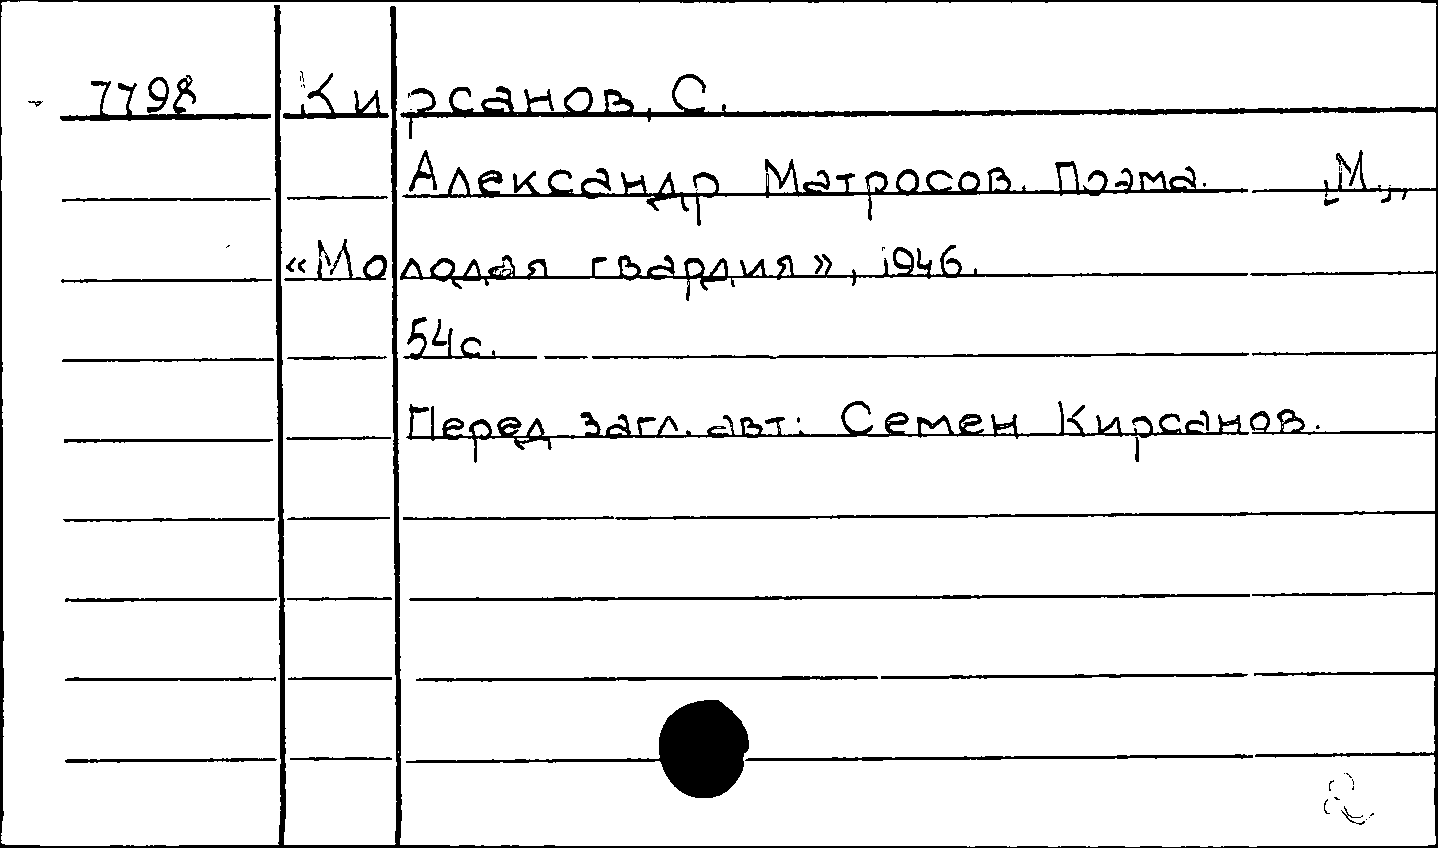 7798 Кирсанов, С.
Александр Матросов. Поэма. [М.],
«Молодая гвардия», 1946.
54с.
Перед загл. авт: Семен Кирсанов.